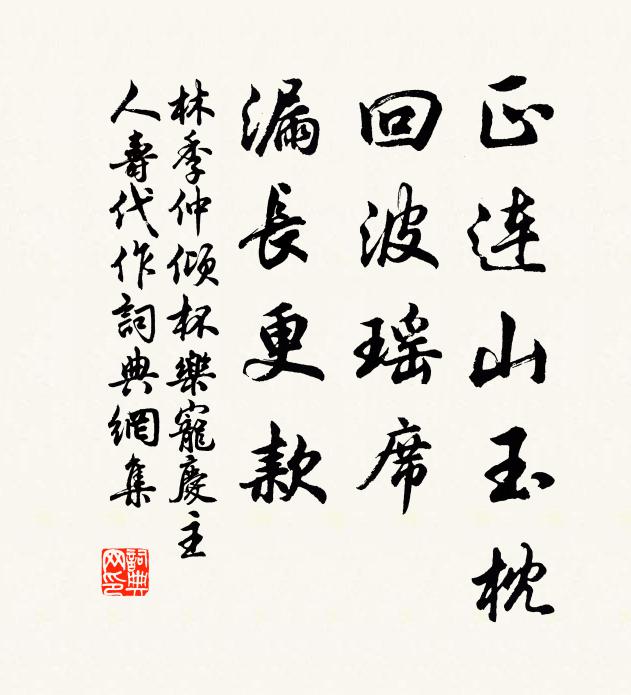 正連山玉枕
回波瑶席
漏長更款
林季仲傾杯樂寵慶主
人壽代作詞典網集
詞典网印